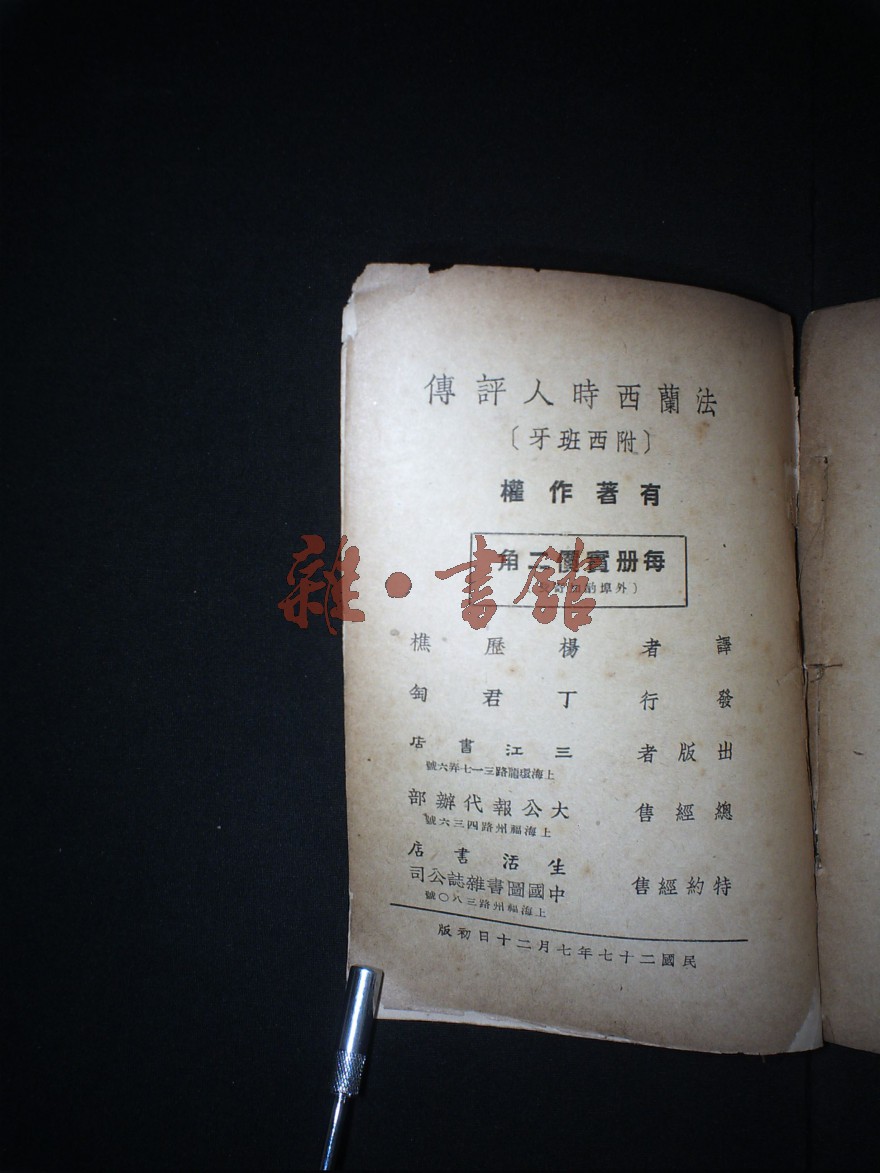 法蘭西時人評傳
〔附西班牙〕
有著作權
每册實價二角
譯者 楊歷樵
發行 丁君匋
出版者 三江書店
上海環龍路三一七弄六號
總經售 大公報代辦部
上海福州路四三六號
特約經售 生活書店
中國圖書雜誌公司
上海福州路三八〇號
民國二十七年七月二十日初版
雜·書館